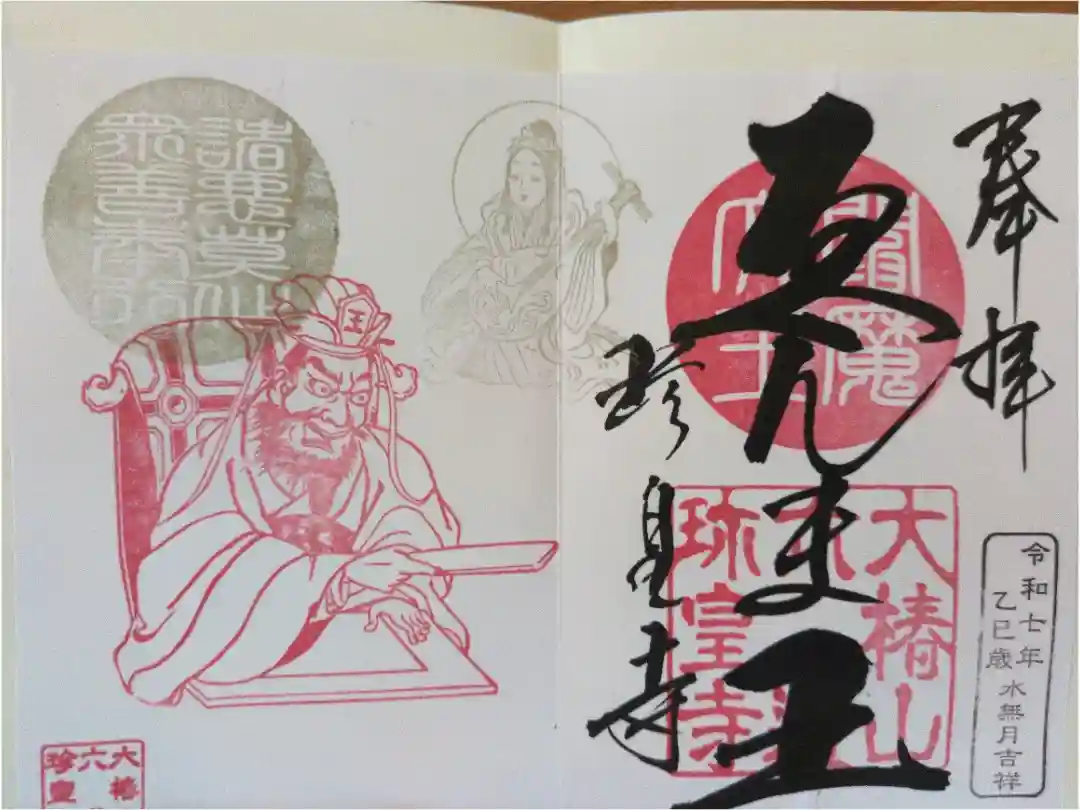 奉拝
令和七年
乙巳歳
水無月吉祥
えんま王
閻魔
大王
大椿山
六道
珍皇寺
珍皇寺
諸悪莫作
衆善奉行
王
大椿
六
珍皇